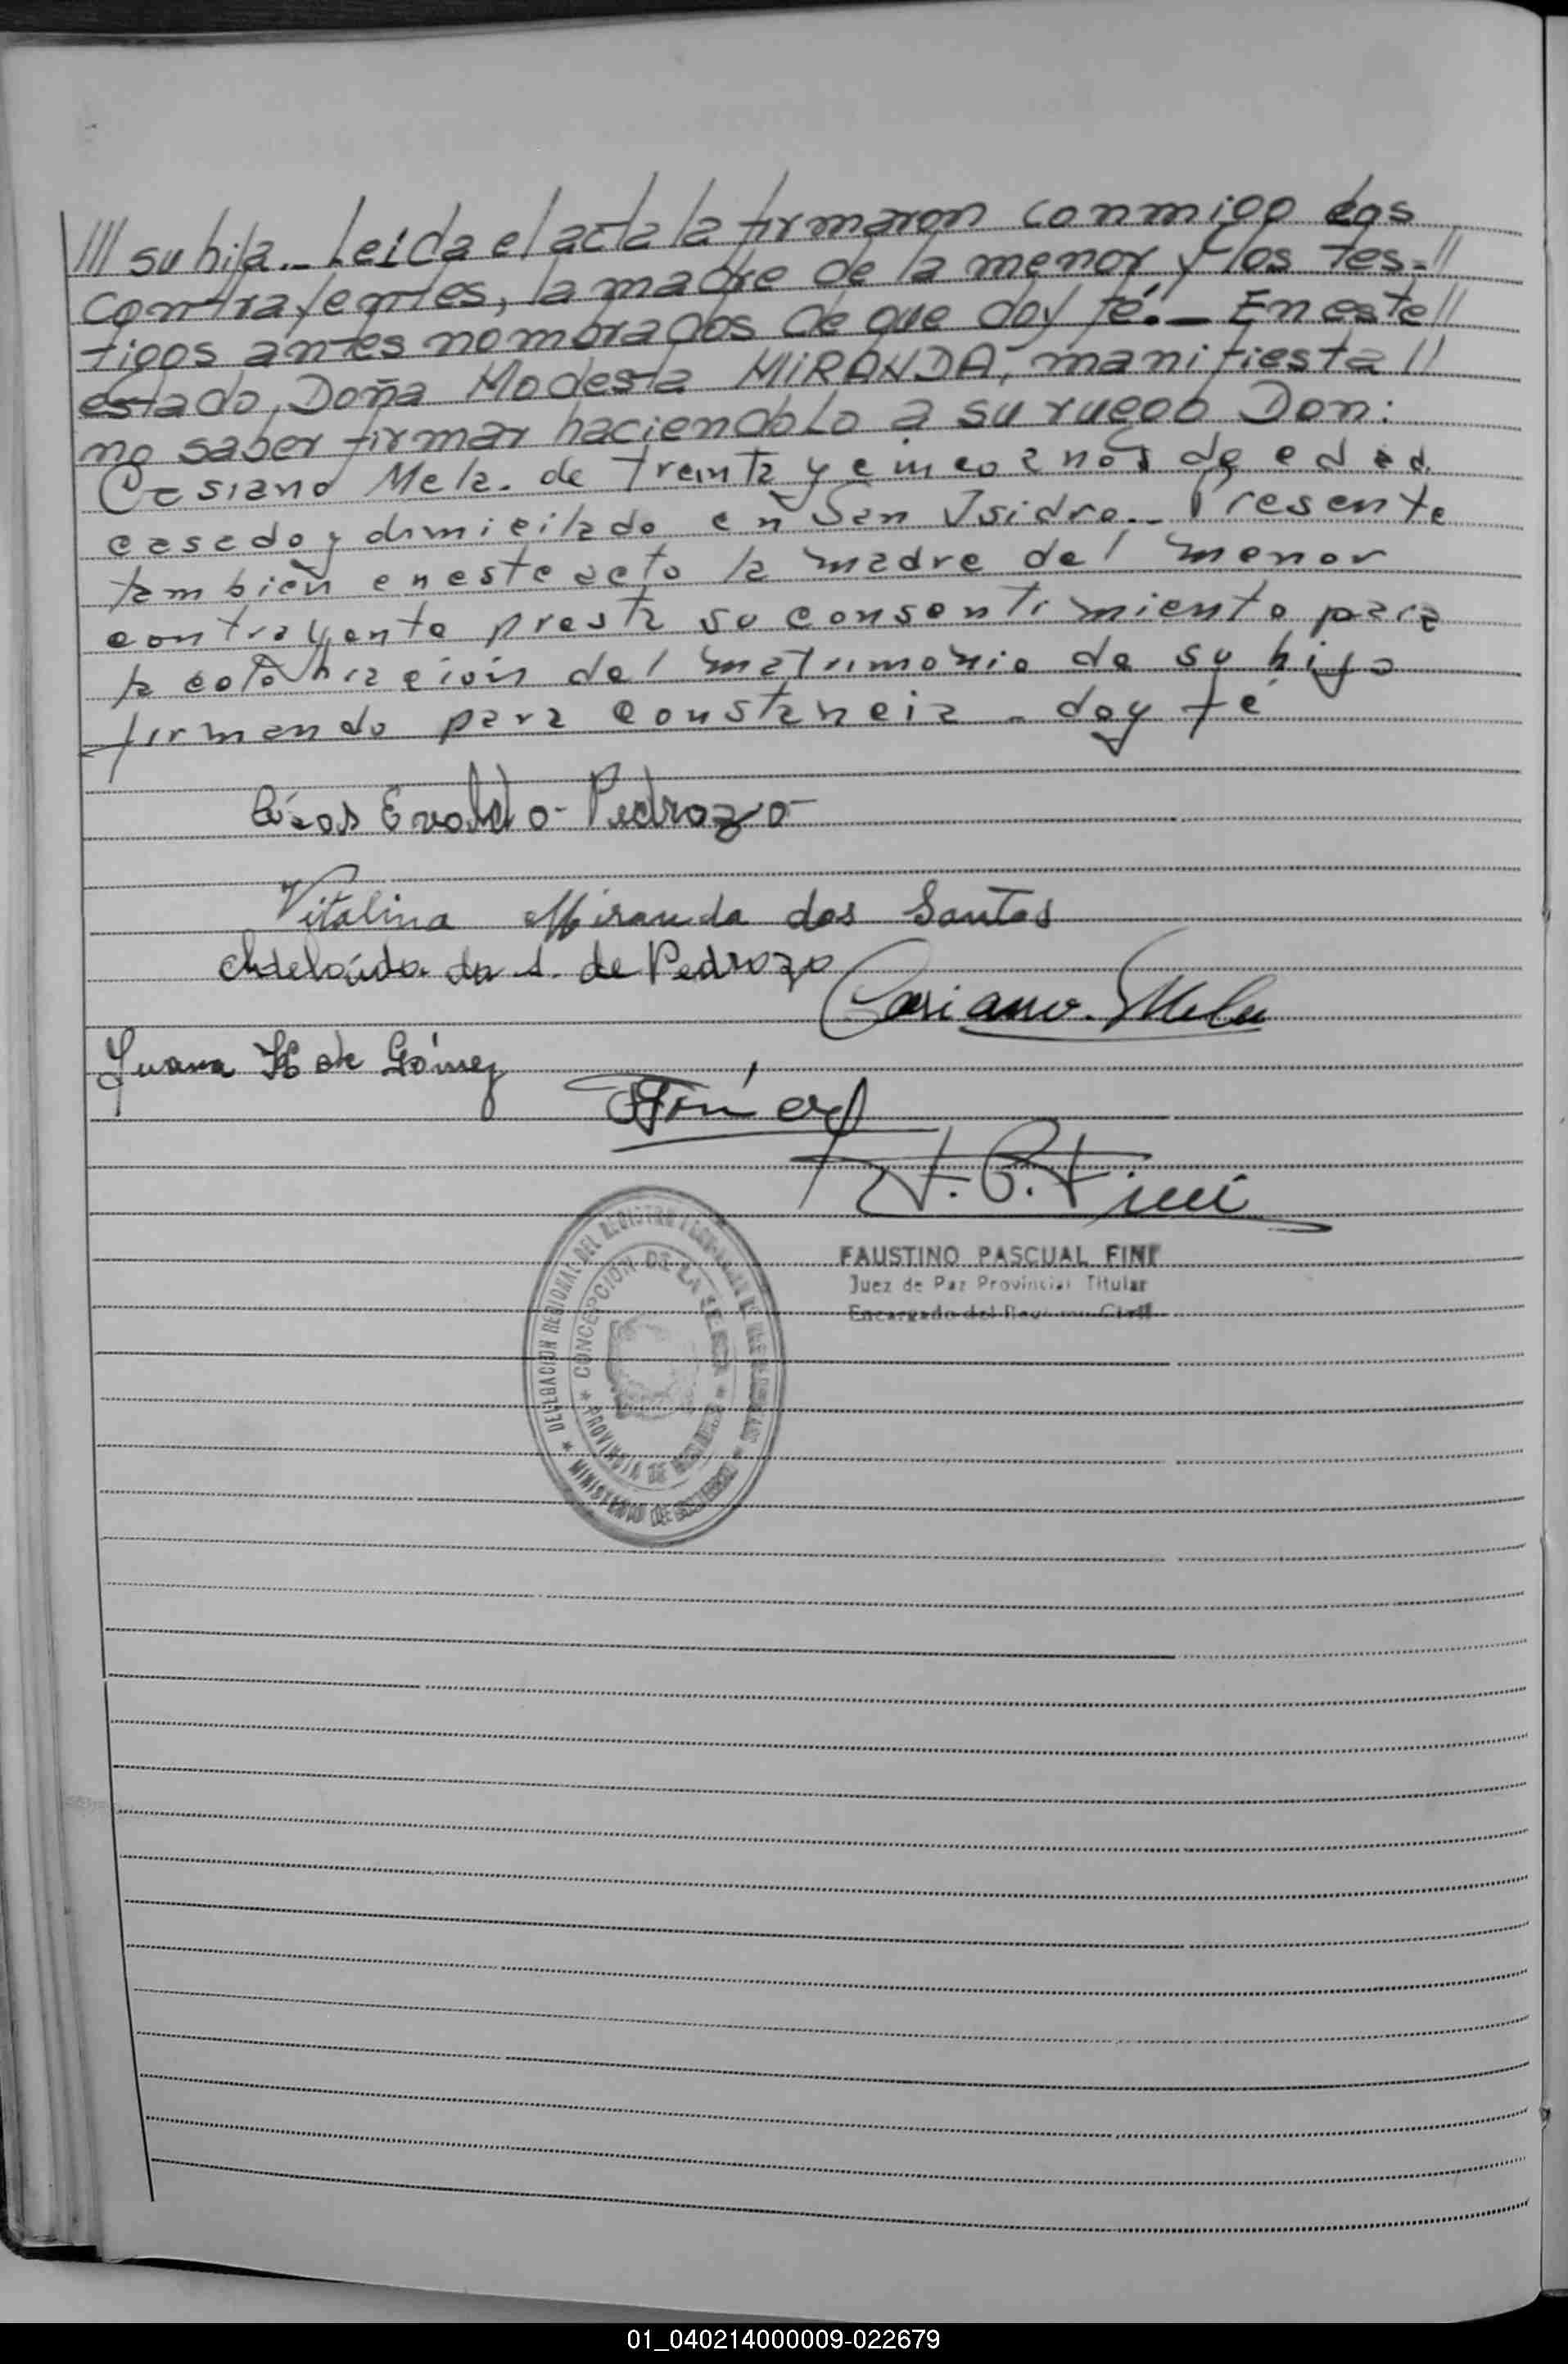 /// su hija._ Leida el acta la firmaron conmigo los
contrayentes, la madre de la menor y los tes-//
tigos antes nombrados de que doy fé._ En este//
estado, Doña Modesta MIRANDA, manifiesta //
no saber firmar haciendolo a su ruego Don:
Casiano Mela. de treinta y cinco años de edad
casado y domicilado en San Isidro._ Presente
tambien en este acto la madre del menor
contrayente presta su consentimiento para
la celebracion del matrimonio de su hijo
firmando para constancia - doy fé
Evaldo Pedrozo
Vitalina Miranda dos Santos
Adelaida de Pedrozo
Casiano Mela
Juana de Gómez
F. P. Fini
FAUSTINO PASCUAL FINI
Juez de Paz Provincial Titular
Encargado del Registro Civil
* DELEGACION REGIONAL DEL REGISTRO PROVINCIAL DE LAS PERSONAS *
* CONCEPCION DE LA SIERRA *
PROVINCIA DE MISIONES
MINISTERIO DE GOBIERNO
01_040214000009-022679